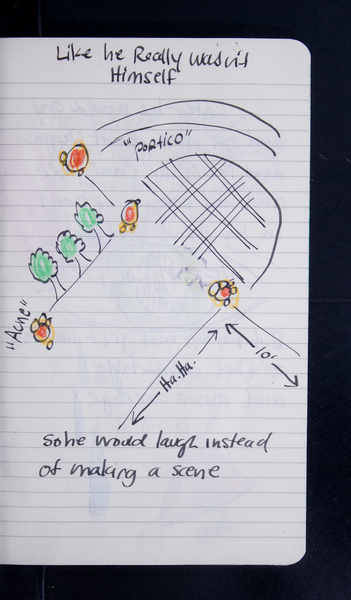 Like he Really wasn't
Himself
"PORTICO"
"Acne"
Ha.Ha.
10'
So he would laugh instead
of making a scene